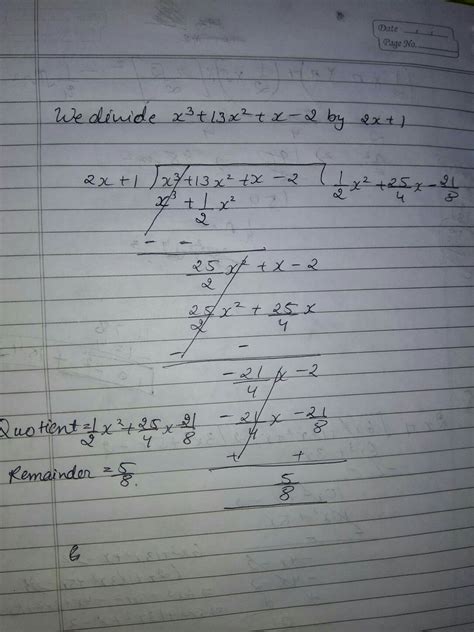 Date
Page No.
We divide x³+13x²+x-2 by 2x+1
2x+1)x³+13x²+x-2(1/2x²+25/4x-21/8
x³+1/2x²
- -
25/2x²+x-2
25/2x²+25/4x
- -
-21/4x-2
-21/4x-21/8
+ +
5/8
Quotient=1/2x²+25/4x 21/8
Remainder=5/8.